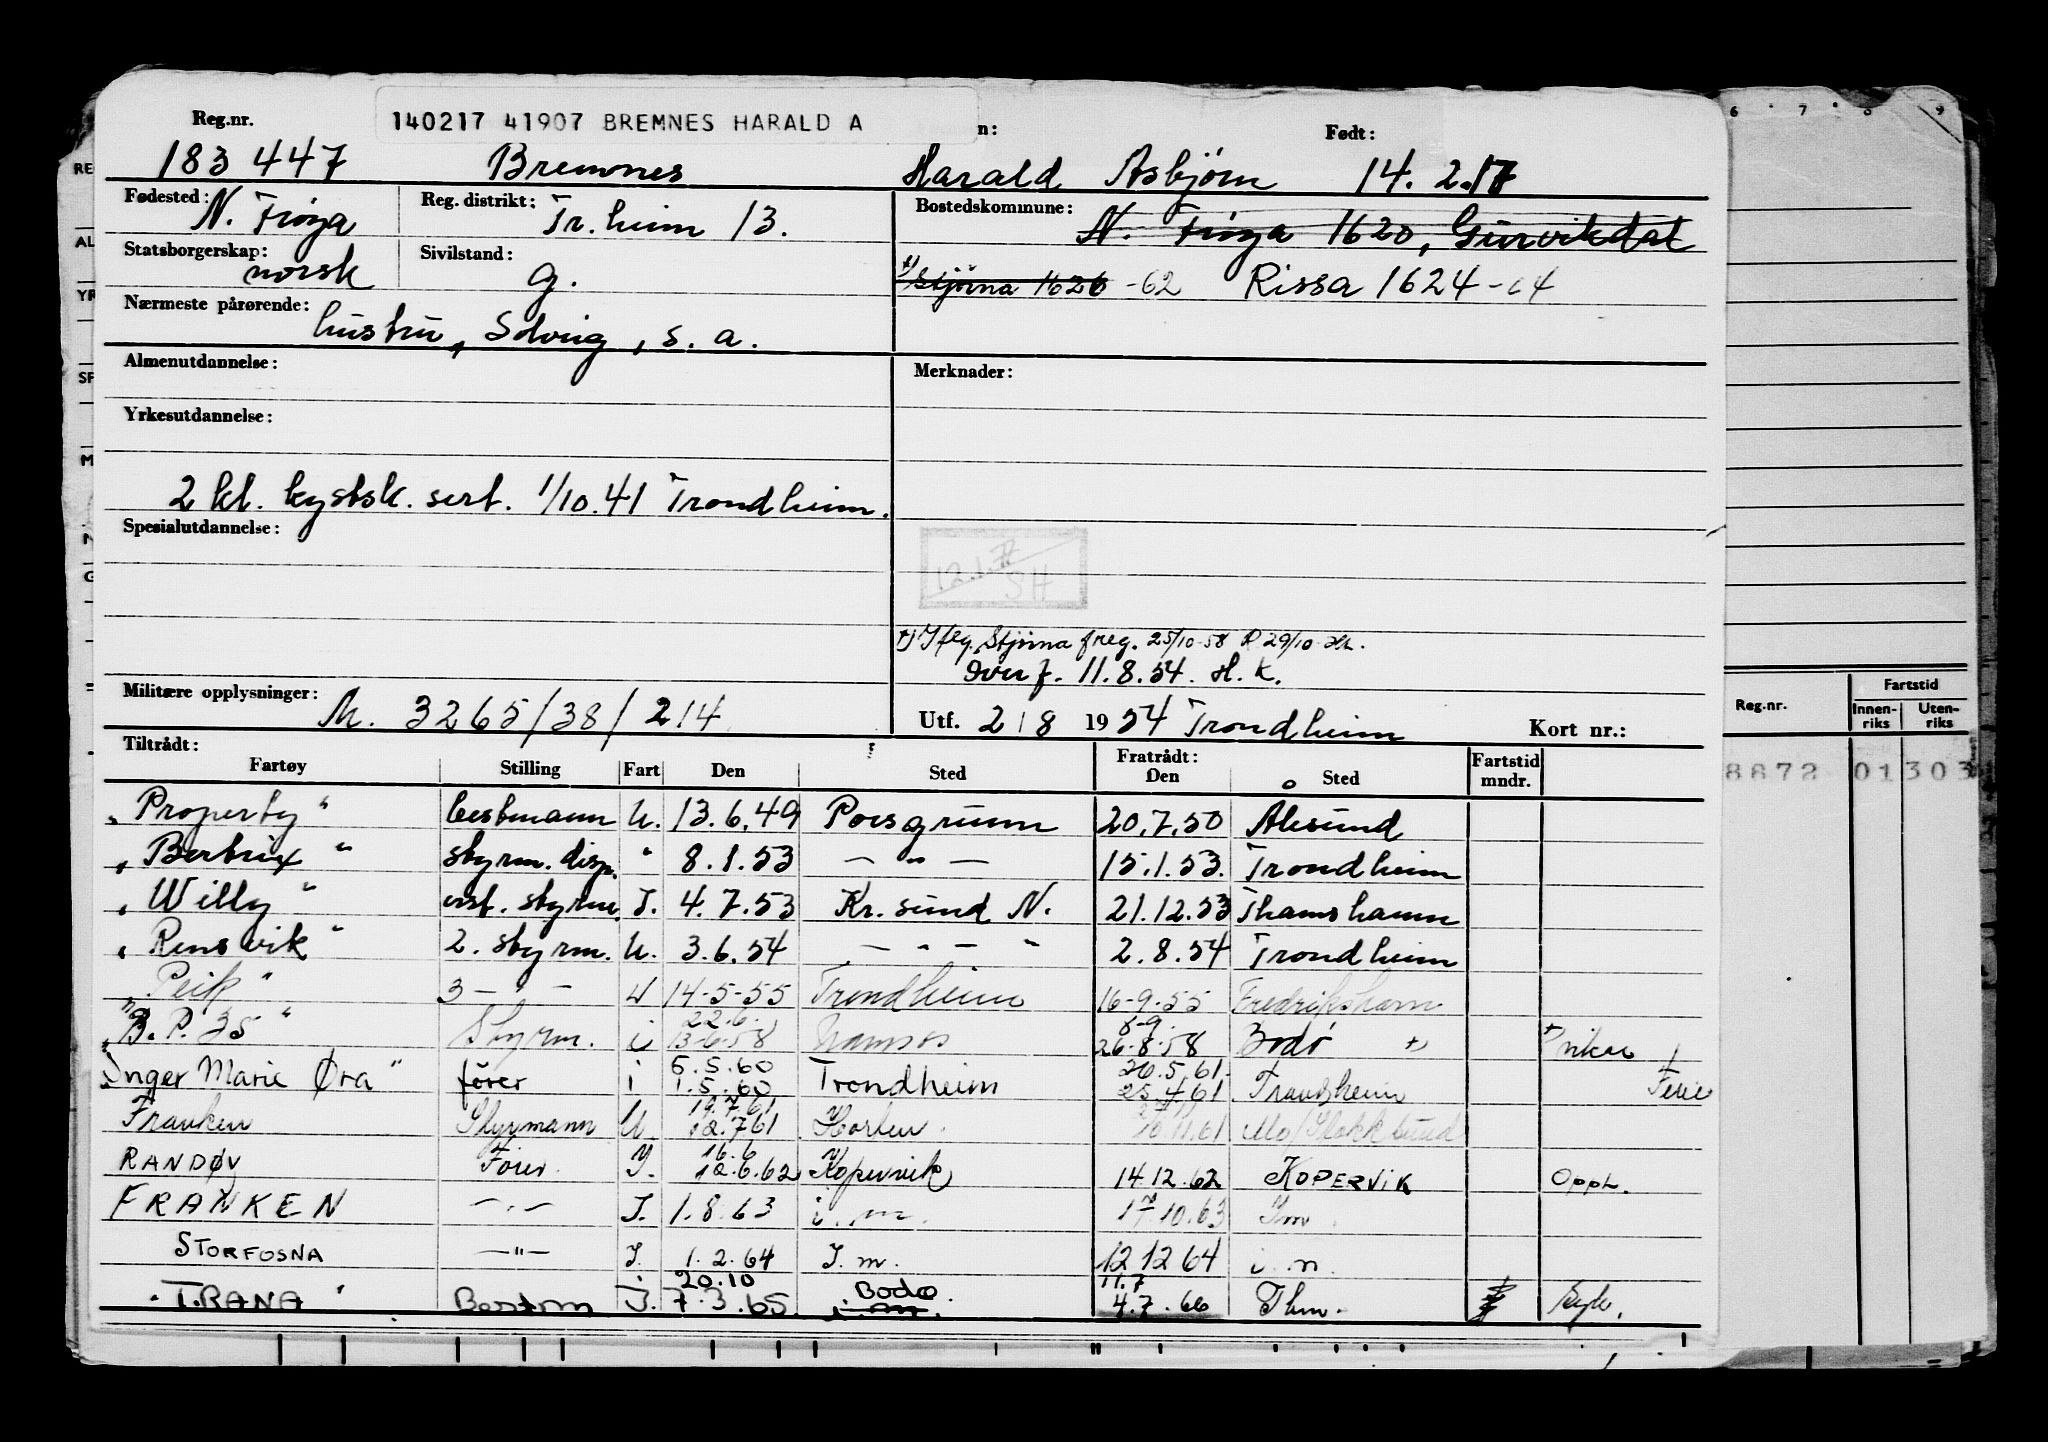 140217 41907 BREMNES HARALD A
Reg.nr. n: Født:
183 447 Bremnes Harald Asbjørn 14. 2.17
Fødested: N. Frøya Reg. distrikt: Tr.heim 13. Bostedskommune: N. Frøya 1620, Gurvikdal
Statsborgerskap: norsk Sivilstand: g. x) Stjørna 1626 -62 Rissa 1624-64
Nærmeste pårørende: hustru, Solveig, s. a.
Almenutdannelse: Merknader:
Yrkesutdannelse:
2 kl. kystsk. sert. 1/10.41 Trondheim.
Spesialutdannelse:
12.1.77
SH
x) Iflg. Stjørna freg. 25/10-58 29/10
Overf. 11.8.54. H.K.
Militære opplysninger: M. 3265/38/214 Utf. 2/8 1954 Trondheim Kort nr.:
Tiltrådt: Fratrådt: Fartstid
Fartøy Stilling Fart Den Sted Den Sted mndr.
"Property" bestmann U. 13.6.49 Porsgrunn 20.7.50 Ålesund
"Bertrix" styrm. disp. " 8.1.53 — " — 15.1.53. Trondheim
"Willy" best. styrm. I. 4.7.53 Kr.sund N. 21.12.53 Thamshamn
"Rensvik" 2. styrm. U. 3.6.54 — " — " 2.8.54 Trondheim
"Peik" 3 — " — U 14-5-55 Trondheim 16-9-55 Fredrikshamn
22.6. 8-9.
"B.P. 35" Styrm. i 13-6-58 Namsos 26-8-58 Bodø +)
5.5.60 26.5.61.
"Inger Marie Øra" fører i 1.5.60 Trondheim 25.4.61 Trondheim Ferie
19.7.61
Franken Styrmann U. 12.7.61 Horten. 10.11.61 Mo/Stokksund
16.6
RANDØY Fører. I. 12.6.62 Kopervik 14.12.62 KOPERVIK OPPH.
FRANKEN — " — I. 1.8.63 i. m. 17.10.63 I m.
STORFOSNA — " — I. 1.2.64 I. m. 12 12 64 i. m.
20.10 Bodø 11.7
"TRANA" Bestm I. 7.3.65. i. m. 4.7.66 Thm.
Reg.nr. Fartstid
Innenriks Utenriks
8672 01 303